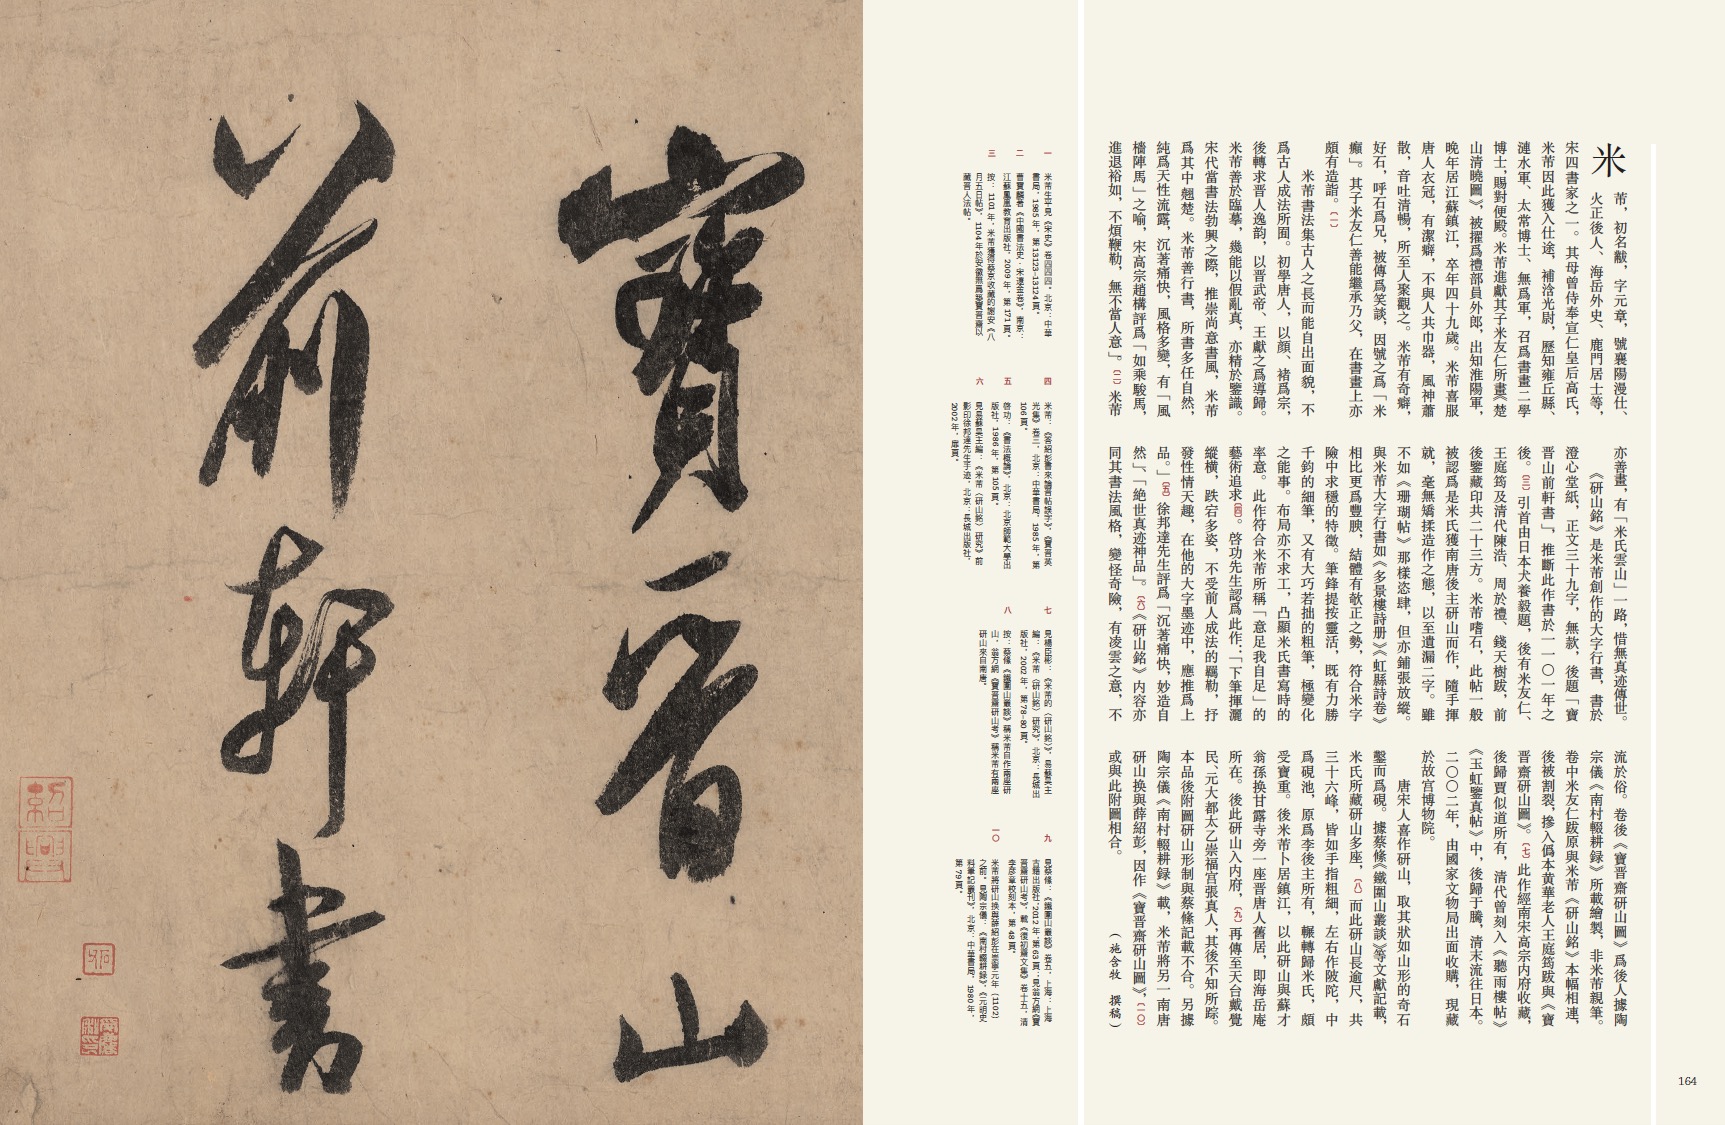 米芾，初名黻，字元章，號襄陽漫仕、
火正後人、海岳外史、鹿門居士等，
宋四書家之一。其母曾侍奉宣仁皇后高氏，
米芾因此獲入仕途，補浛光尉，歷知雍丘縣、
漣水軍、太常博士、無爲軍，召爲書畫二學
博士，賜對便殿。米芾進獻其子米友仁所畫《楚
山清曉圖》，被擢爲禮部員外郎，出知淮陽軍，
晚年居江蘇鎮江，卒年四十九歲。米芾喜服
唐人衣冠，有潔癖，不與人共巾器，風神蕭
散，音吐清暢，所至人聚觀之。米芾有奇癖，
好石，呼石爲兄，被傳爲笑談，因號之爲「米
癲」。其子米友仁善能繼承乃父，在書畫上亦
頗有造詣。〔一〕
米芾書法集古人之長而能自出面貌，不
爲古人成法所囿。初學唐人，以顔、褚爲宗，
後轉求晋人逸韵，以晋武帝、王獻之爲導歸。
米芾善於臨摹，幾能以假亂真，亦精於鑒識。
宋代當書法勃興之際，推崇尚意書風，米芾
爲其中翹楚。米芾善行書，所書多任自然，
純爲天性流露，沉著痛快，風格多變，有「風
檣陣馬」之喻，宋高宗趙構評爲「如乘駿馬，
進退裕如，不煩鞭勒，無不當人意」。〔二〕米芾
亦善畫，有「米氏雲山」一路，惜無真迹傳世。
《研山銘》是米芾創作的大字行書，書於
澄心堂紙，正文三十九字，無款，後題「寶
晋山前軒書」，推斷此作書於一一〇一年之
後。〔三〕引首由日本犬養毅題，後有米友仁、
王庭筠及清代陳浩、周於禮、錢天樹跋，前
後鑒藏印共二十三方。米芾嗜石，此帖一般
被認爲是米氏獲南唐後主研山而作，隨手揮
就，毫無矯揉造作之態，以至遺漏二字。雖
不如《珊瑚帖》那樣恣肆，但亦鋪張放縱。
與米芾大字行書如《多景樓詩册》《虹縣詩卷》
相比更爲豐腴，結體有欹正之勢，符合米字
險中求穩的特徵。筆鋒提按靈活，既有力勝
千鈞的細筆，又有大巧若拙的粗筆，極變化
之能事。布局亦不求工，凸顯米氏書寫時的
率意。此作符合米芾所稱「意足我自足」的
藝術追求〔四〕。啓功先生認爲此作：「下筆揮灑
縱橫，跌宕多姿，不受前人成法的羈勒，抒
發性情天趣，在他的大字墨迹中，應推爲上
品。」〔五〕徐邦達先生評爲「沉著痛快，妙造自
然」、「絶世真迹神品」。〔六〕《研山銘》内容亦
同其書法風格，變怪奇險，有凌雲之意，不
流於俗。卷後《寶晋齋研山圖》爲後人據陶
宗儀《南村輟耕録》所載繪製，非米芾親筆。
卷中米友仁跋原與米芾《研山銘》本幅相連，
後被割裂，摻入僞本黄華老人王庭筠跋與《寶
晋齋研山圖》。〔七〕此作經南宋高宗内府收藏，
後歸賈似道所有，清代曾刻入《聽雨樓帖》
《玉虹鑒真帖》中，後歸于騰，清末流往日本。
二〇〇二年，由國家文物局出面收購，現藏
於故宫博物院。
唐宋人喜作研山，取其狀如山形的奇石
鑿而爲硯。據蔡絛《鐵圍山叢談》等文獻記載，
米氏所藏研山多座，〔八〕而此研山長逾尺，共
三十六峰，皆如手指粗細，左右作陂陀，中
爲硯池，原爲李後主所有，輾轉歸米氏，頗
受寶重。後米芾卜居鎮江，以此研山與蘇才
翁孫换甘露寺旁一座晋唐人舊居，即海岳庵
所在。後此研山入内府，〔九〕再傳至天台戴覺
民、元大都太乙崇福宫張真人，其後不知所踪。
本品後附圖研山形制與蔡絛記載不合。另據
陶宗儀《南村輟耕録》載，米芾將另一南唐
研山换與薛紹彭，因作《寶晋齋研山圖》，〔一〇〕
或與此附圖相合。
（施含牧 撰稿）
一 米芾生平見《宋史》卷四四四，北京：中華
書局，1985年，第13123—13124頁。
二 曹寶麟著《中國書法史·宋遼金卷》，南京：
江蘇鳳凰教育出版社，2009年，第171頁。
三 按：1101年，米芾獲得蔡京收藏的謝安《八
月五日帖》，1104年於安徽無爲築寶晋齋以
藏晋人法帖。
四 米芾：《答紹彭書來論晋帖誤字》，《寶晋英
光集》卷三，北京：中華書局，1985年，第
106頁。
五 啓功：《書法概論》，北京：北京師範大學出
版社，1986年，第105頁。
六 見易蘇昊主編：《米芾〈研山銘〉研究》前
影印徐邦達先生手迹，北京：長城出版社，
2002年，扉頁。
七 見楊臣彬：《米芾的〈研山銘〉》，易蘇昊主
編：《米芾〈研山銘〉研究》，北京：長城出
版社，2002年，第78—80頁。
八 按：蔡絛《鐵圍山叢談》稱米芾自作兩座研
山，翁方綱《寶晋齋研山考》稱米芾有兩座
研山來自南唐。
九 見蔡絛：《鐵圍山叢談》卷五，上海：上海
古籍出版社，2012年，第63頁；見翁方綱《寶
晋齋研山考》，載《復初齋文集》卷十五，清
李彦章校刻本，第48頁。
一〇 米芾將研山换與薛紹彭在崇寧元年（1102）
之前。見陶宗儀：《南村輟耕録》，《元明史
料筆記叢刊》，北京：中華書局，1980年，
第79頁。
164
寶晉山
前軒書
紹興